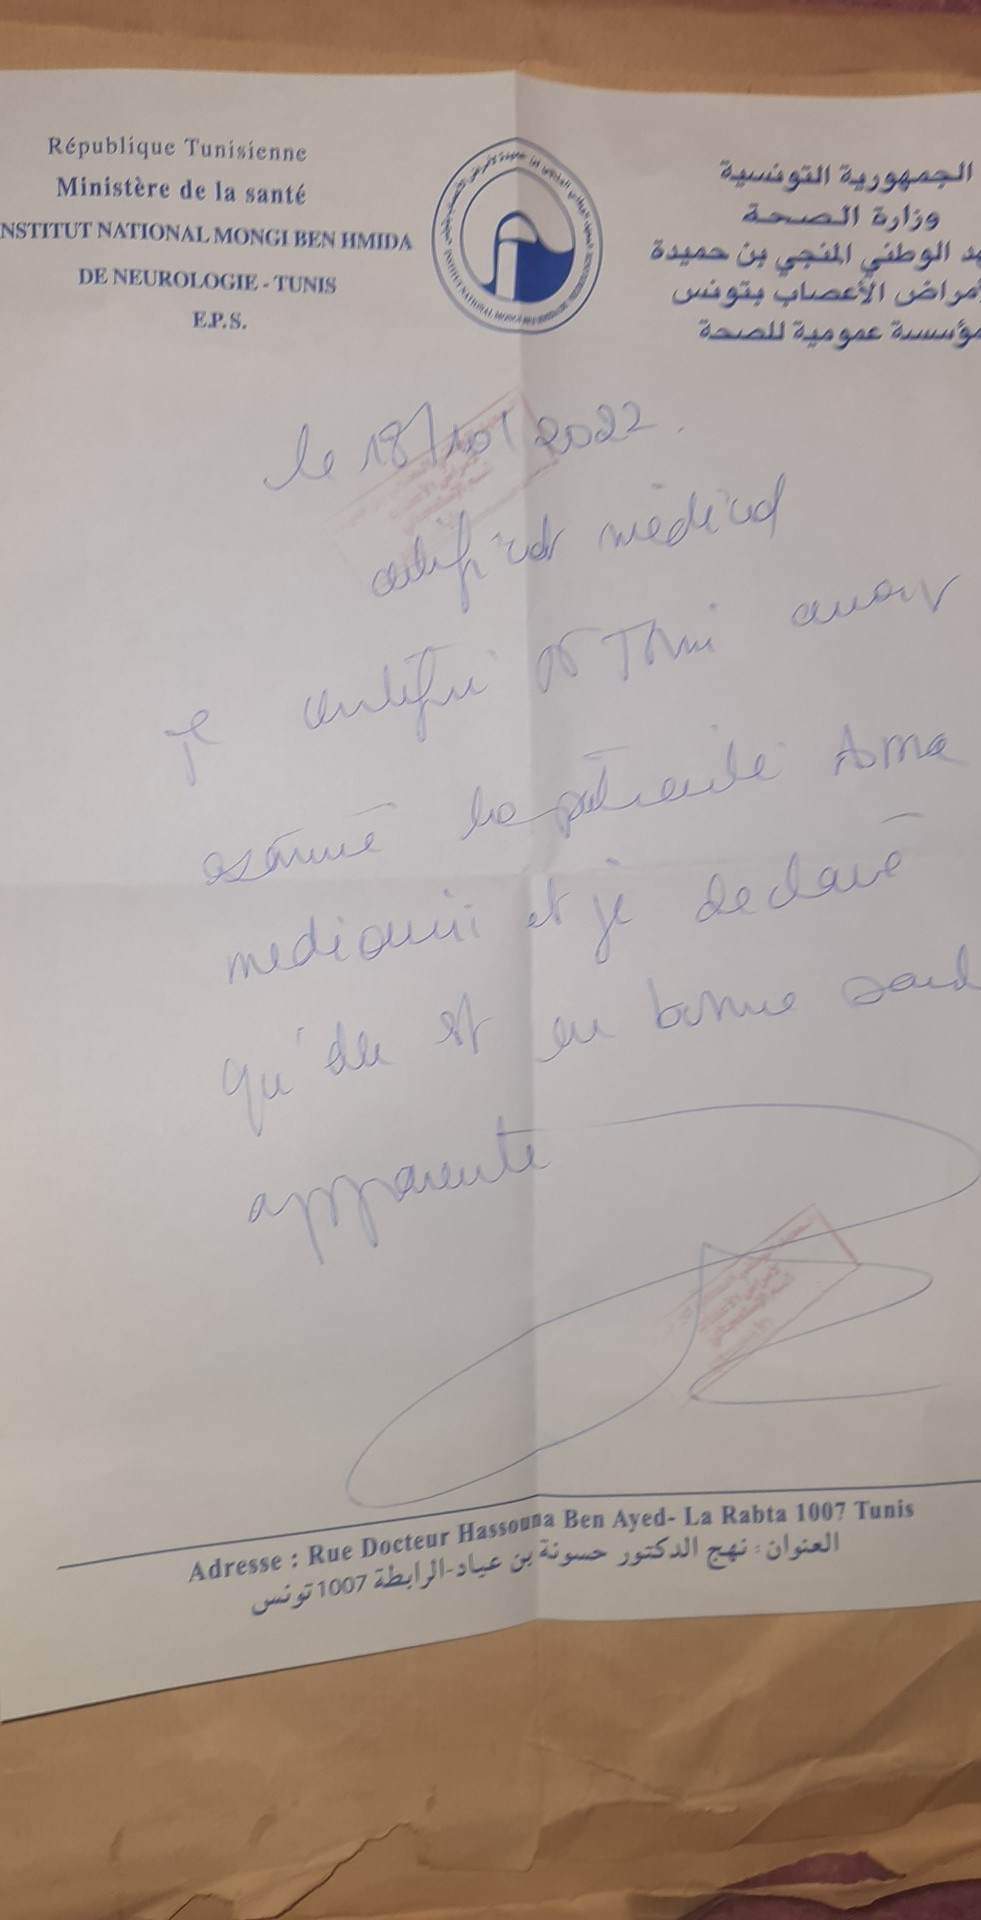 République Tunisienne
Ministère de la santé
NSTITUT NATIONAL MONGI BEN HMIDA
DE NEUROLOGIE - TUNIS
E.P.S.
الجمهورية التونسية
وزارة الصحة
د الوطني المنجي بن حميدة
مراض الأعصاب بتونس
ؤسسة عمومية للصحة
le 18/10/2022.
certificat médical
Je certifie avoir
examiné la patiente Asma
mediouni et je declare
qu'elle est en bonne santé
apparente
Adresse : Rue Docteur Hassouna Ben Ayed- La Rabta 1007 Tunis
العنوان : نهج الدكتور حسونة بن عياد-الرابطة 1007 تونس